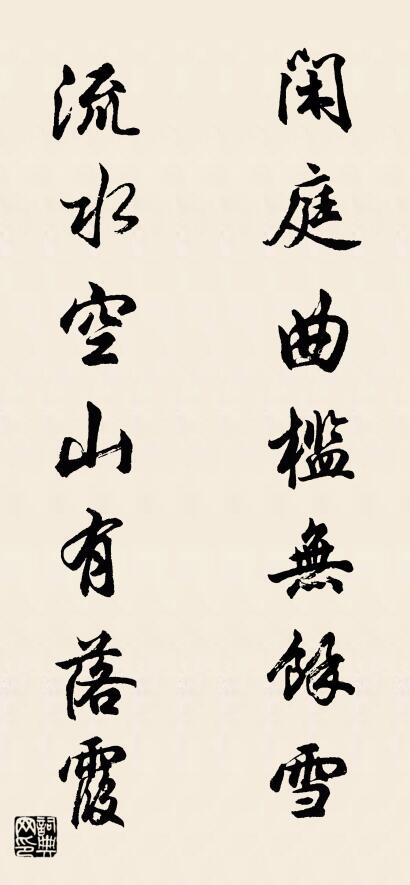 閑庭曲檻無餘雪
流水空山有落霞
詞典网印